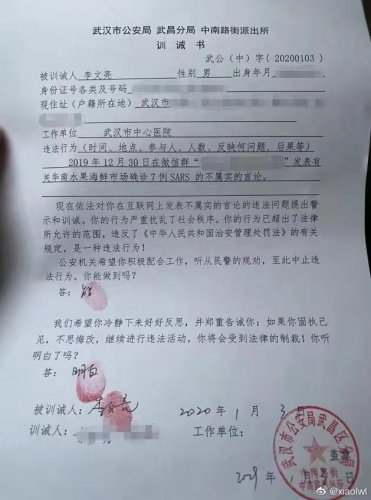 武汉市公安局 武昌分局 中南路街派出所
训 诫 书
武公（中）字（20200103）
被训诫人 李文亮 性别 男 出生年月
身份证号各类及号码
现住址（户籍所在地） 武汉市
工作单位 武汉市中心医院
违法行为（时间、地点、参与人、人数、反映何问题、后果等）
2019年12月30日在微信群“ ”发表有
关华南水果海鲜市场确诊7例SARS的不属实的言论。
现在依法对你在互联网上发表不属实的言论的违法问题提出警
示和训诫。你的行为严重扰乱了社会秩序。你的行为已超出了法律
所允许的范围，违反了《中华人民共和国治安管理处罚法》的有关
规定，是一种违法行为！
公安机关希望你积极配合工作，听从民警的规劝，至此中止违
法行为。你能做到吗？
答：能
我们希望你冷静下来好好反思，并郑重告诫你：如果你固执己
见，不思悔改，继续进行违法活动，你将会受到法律的制裁！你听
明白了吗？
答：明白
被训诫人：李文亮 2020年1月3日
训诫人： 工作单位：
武汉市公安局武昌区
中南路街派出所
年 月 日
@xiaolwl